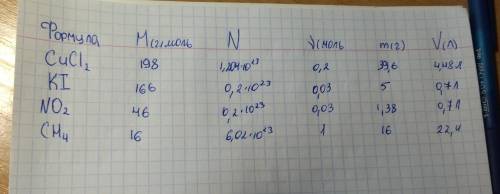 Формула M(г/моль N ν(моль m(г) V(л)
CuCl₂ 198 1,204·10²³ 0,2 39,6 4,48л
KI 166 0,2·10²³ 0,03 5 0,7л
NO₂ 46 0,2·10²³ 0,03 1,38 0,7л
CH₄ 16 6,02·10²³ 1 16 22,4